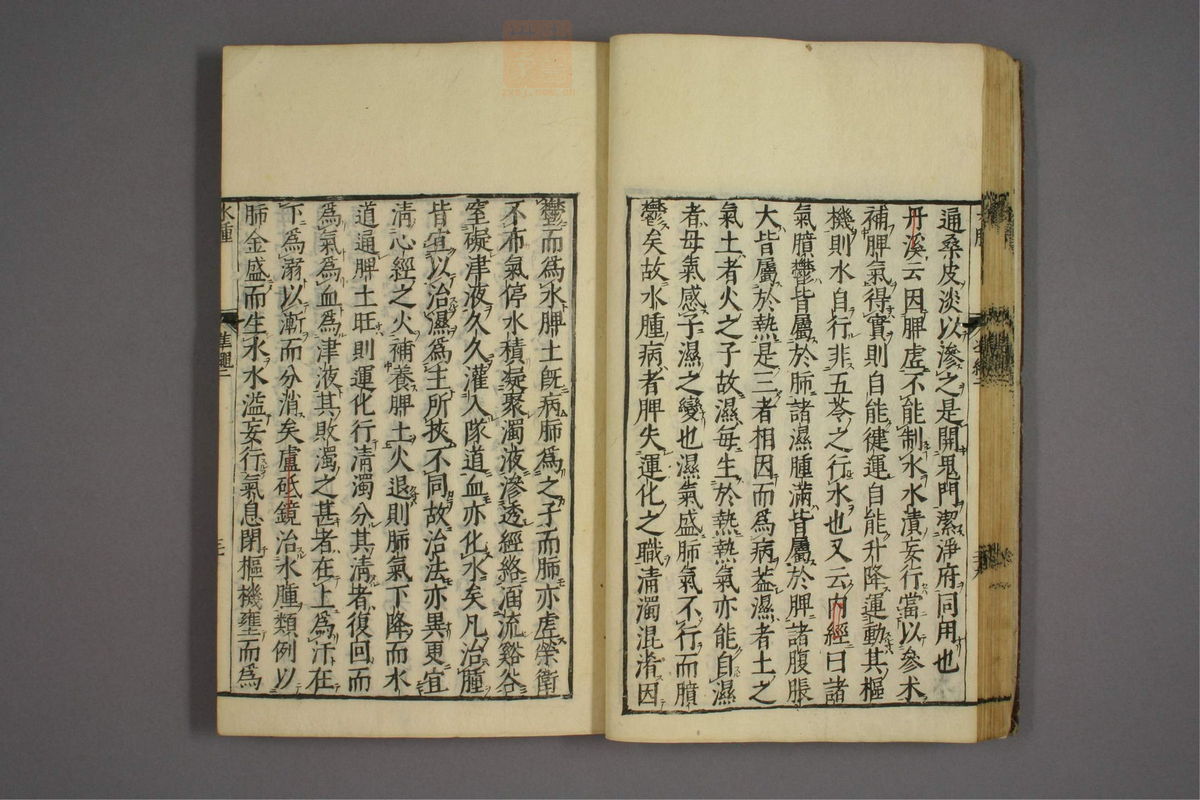 通桑皮淡以滲之是開鬼門潔淨府同用也
丹溪云因脾虛不能制水水漬妄行當以參术
補脾氣得實則自能健運自能升降運動其樞
機則水自行非五苓之行水也又云內經曰諸
氣膹鬱皆屬於肺諸濕腫滿皆屬於脾諸腹脹
大皆屬於熱是三者相因而爲病蓋濕者土之
氣土者火之子故濕每生於熱熱氣亦能自濕
者母氣感子濕之變也濕氣盛肺氣不行而膹
鬱矣故水腫病者脾失運化之職清濁混淆因
鬱而爲水脾土旣病肺爲之子而肺亦虛榮衛
不布氣停水積凝聚濁液滲透經絡涸流谿谷
窒礙津液久久灌入隊道血亦化水矣凡治腫
皆宜以治濕爲主所挾不同故治法亦異更宜
清心經之火補養脾土火退則肺氣下降而水
道通脾土旺則運化行清濁分其清者復回而
爲氣爲血爲津液其敗濁之甚者在上爲汗在
下爲溺以漸而分消矣盧砥鏡治水腫類例以
肺金盛而生水水溢妄行氣息閉樞機壅而爲
水腫